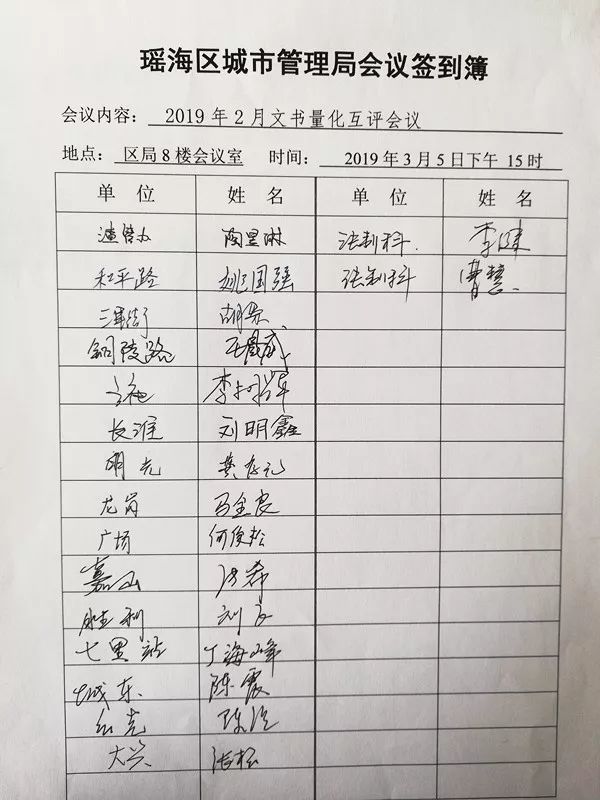 瑶海区城市管理局会议签到簿
会议内容： 2019 年 2 月文书量化互评会议
地点： 区局 8 楼会议室 时间： 2019 年 3 月 5 日下午 15 时
单 位 姓 名 单 位 姓 名
渣管办 陶星琳 法制科. 李健
和平路 姚国强 法制科 曹慧.
三里街 胡
铜陵路 王 威
李 军
长淮 刘明鑫
明光 龚存礼
龙岗 马金良
广场 何俊松
嘉山
胜利 刘
七里站 丁海峰
城东. 陈霞
红光 陈
大兴 张松